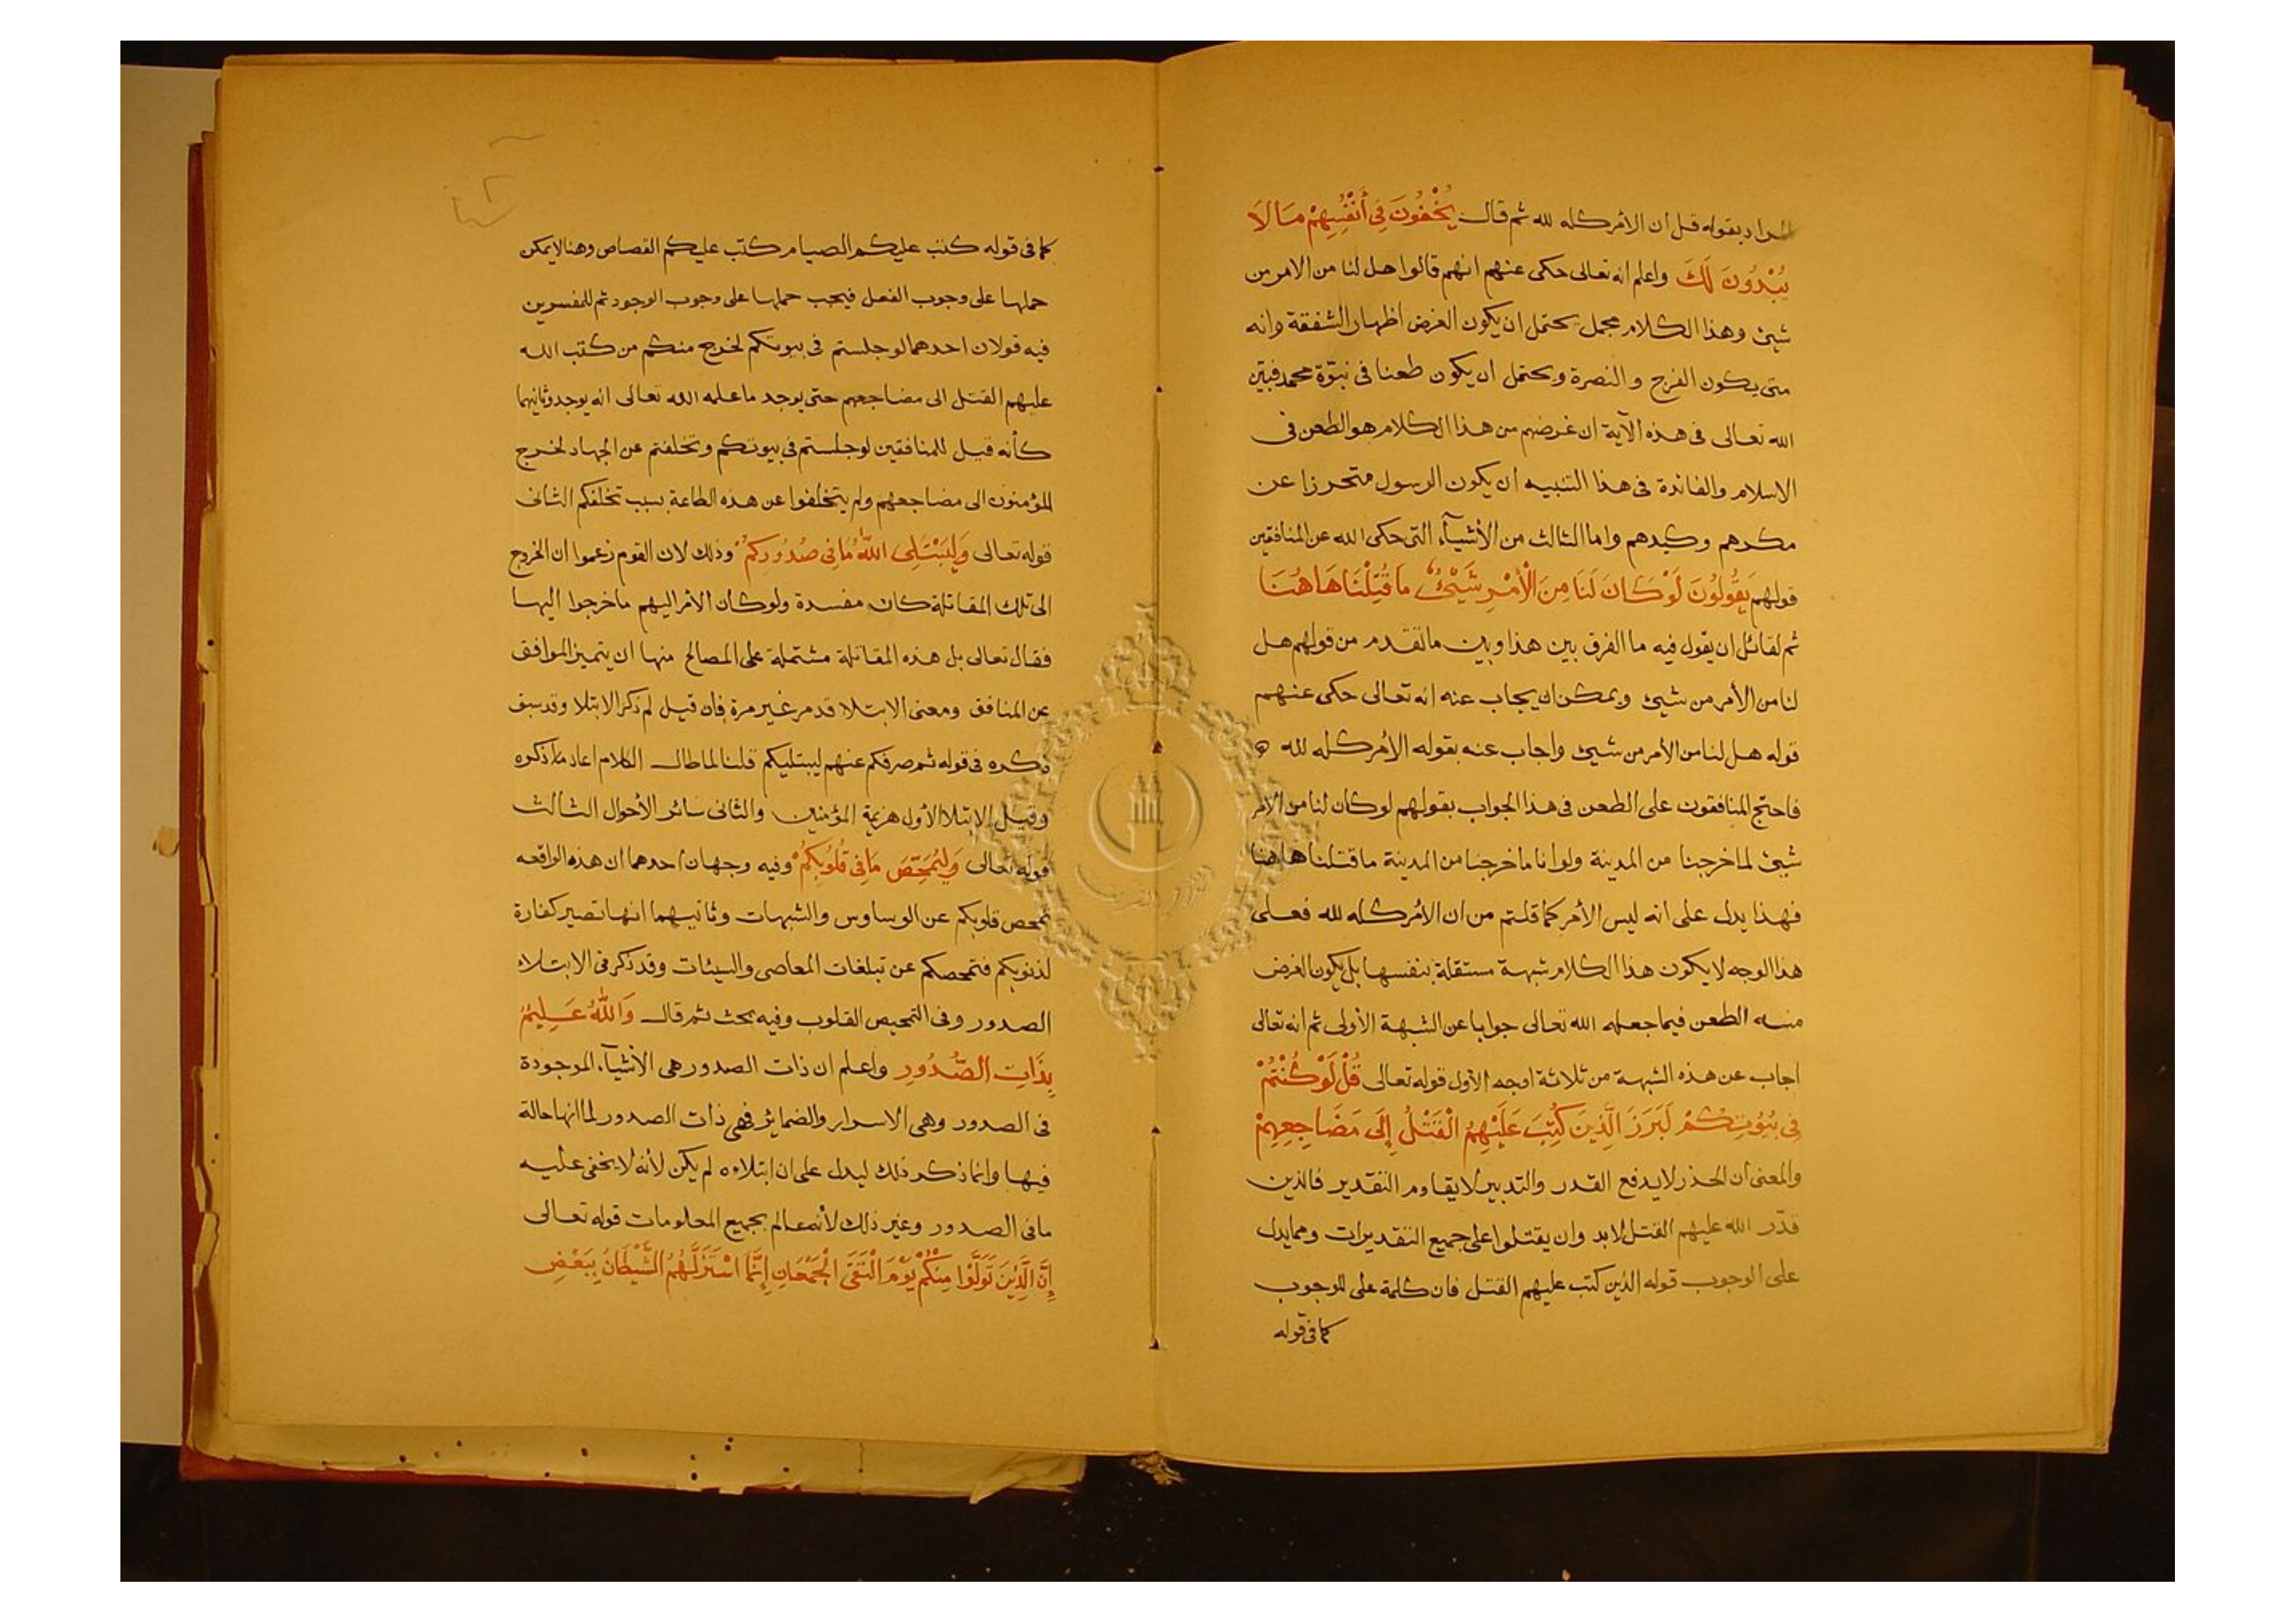 المراد بقوله قل ان الأمر كله لله ثم قال يُخْفُونَ فِي أَنْفُسِهِمْ مَا لَا
يُبْدُونَ لَكَ واعلم انه تعالى حكى عنهم انهم قالوا هل لنا من الامر من
شيئ وهذا الكلام مجمل يحتمل ان يكون الغرض اظهار الشفقة وانه
متى يكون الفرج والنصرة ويحتمل ان يكون طعنا فى نبوّة محمد فبيّن
الله تعالى فى هذه الآية ان غرضهم من هذا الكلام هو الطعن فى
الاسلام والفائدة فى هذا التنبيه ان يكون الرسول متحرزا عن
مكرهم وكيدهم واما الثالث من الأشيآء التى حكى الله عن المنافقين
قولهم يَقُولُونَ لَوْ كَانَ لَنَا مِنَ الْأَمْرِ شَيْئٌ مَا قُتِلْنَا هَاهُنَا
ثم لقائل ان يقول فيه ما الفرق بين هذا وبين ما تقدم من قولهم هل
لنا من الأمر من شيئ ويمكن ان يجاب عنه انه تعالى حكى عنهم
قوله هل لنا من الأمر من شيئ واجاب عنه بقوله الأمر كله لله
فاحتج المنافقون على الطعن فى هذا الجواب بقولهم لو كان لنا من الأمر
شيئ لما خرجنا من المدينة ولو انا ما خرجنا من المدينة ما قتلنا هاهنا
فهذا يدل على انه ليس الأمر كما قلتم من ان الأمر كله لله فعلى
هذا الوجه لا يكون هذا الكلام شبهة مستقلة بنفسها بل يكون الغرض
منه الطعن فيما جعله الله تعالى جوابا عن الشبهة الأولى ثم انه تعالى
اجاب عن هذه الشبهة من ثلاثة اوجه الأول قوله تعالى قُلْ لَوْ كُنْتُمْ
فِي بُيُوتِكُمْ لَبَرَزَ الَّذِينَ كُتِبَ عَلَيْهِمُ الْقَتْلُ إِلَى مَضَاجِعِهِمْ
والمعنى ان الحذر لا يدفع القدر والتدبير لا يقاوم التقدير فالذين
قدّر الله عليهم القتل لابد وان يقتلوا على جميع التقديرات ومما يدل
على الوجوب قوله الذين كتب عليهم القتل فان كلمة على للوجوب
كما فى قوله
كما فى قوله كتب عليكم الصيام كتب عليكم القصاص وهنا لا يمكن
حملها على وجوب الفعل فيجب حملها على وجوب الوجود ثم للمفسرين
فيه قولان احدهما لو جلستم فى بيوتكم لخرج منكم من كتب الله
عليهم القتل الى مضاجعهم حتى يوجد ما علمه الله تعالى انه يوجد وثانيهما
كأنه قيل للمنافقين لو جلستم فى بيوتكم وتخلفتم عن الجهاد لخرج
المؤمنون الى مضاجعهم ولم يتخلفوا عن هذه الطاعة بسبب تخلفكم الثانى
قوله تعالى وَلِيَبْتَلِىَ اللّٰهُ مَا فِى صُدُورِكُمْ وذلك لان القوم زعموا ان الخروج
الى تلك المقاتلة كان مفسدة ولو كان الأمر اليهم ما خرجوا اليها
فقال تعالى بل هذه المقاتلة مشتملة على المصالح منها ان يتميز الموافق
عن المنافق ومعنى الابتلا قد مر غير مرة فان قيل لم ذكر الابتلا وقد سبق
ذكره فى قوله ثم صرفكم عنهم ليبتليكم قلنا لما طال الكلام اعاد ما ذكره
وقيل الابتلا الأول هزيمة المؤمنين والثانى سائر الأحوال الثالث
قوله تعالى وَلِيُمَحِّصَ مَا فِي قُلُوبِكُمْ وفيه وجهان احدهما ان هذه الواقعه
تمحص قلوبكم عن الوساوس والشبهات وثانيهما انها تصير كفارة
لذنوبكم فتمحصكم عن تبلغات المعاصى والسيئات وقد ذكر فى الابتلاء
الصدور وفى التمحيص القلوب وفيه بحث ثم قال وَاللّٰهُ عَلِيمٌ
بِذَاتِ الصُّدُورِ واعلم ان ذات الصدور هى الأشيآء الموجودة
فى الصدور وهى الاسرار والضمائر فهى ذات الصدور لما انها حالة
فيها وانما ذكر ذلك ليدل على ان ابتلاءه لم يكن لأنه لا يخفى عليه
ما فى الصدور وغير ذلك لأنه عالم بجميع المعلومات قوله تعالى
إِنَّ الَّذِينَ تَوَلَّوْا مِنْكُمْ يَوْمَ الْتَقَى الْجَمْعَانِ إِنَّمَا اسْتَزَلَّهُمُ الشَّيْطَانُ بِبَعْضِ